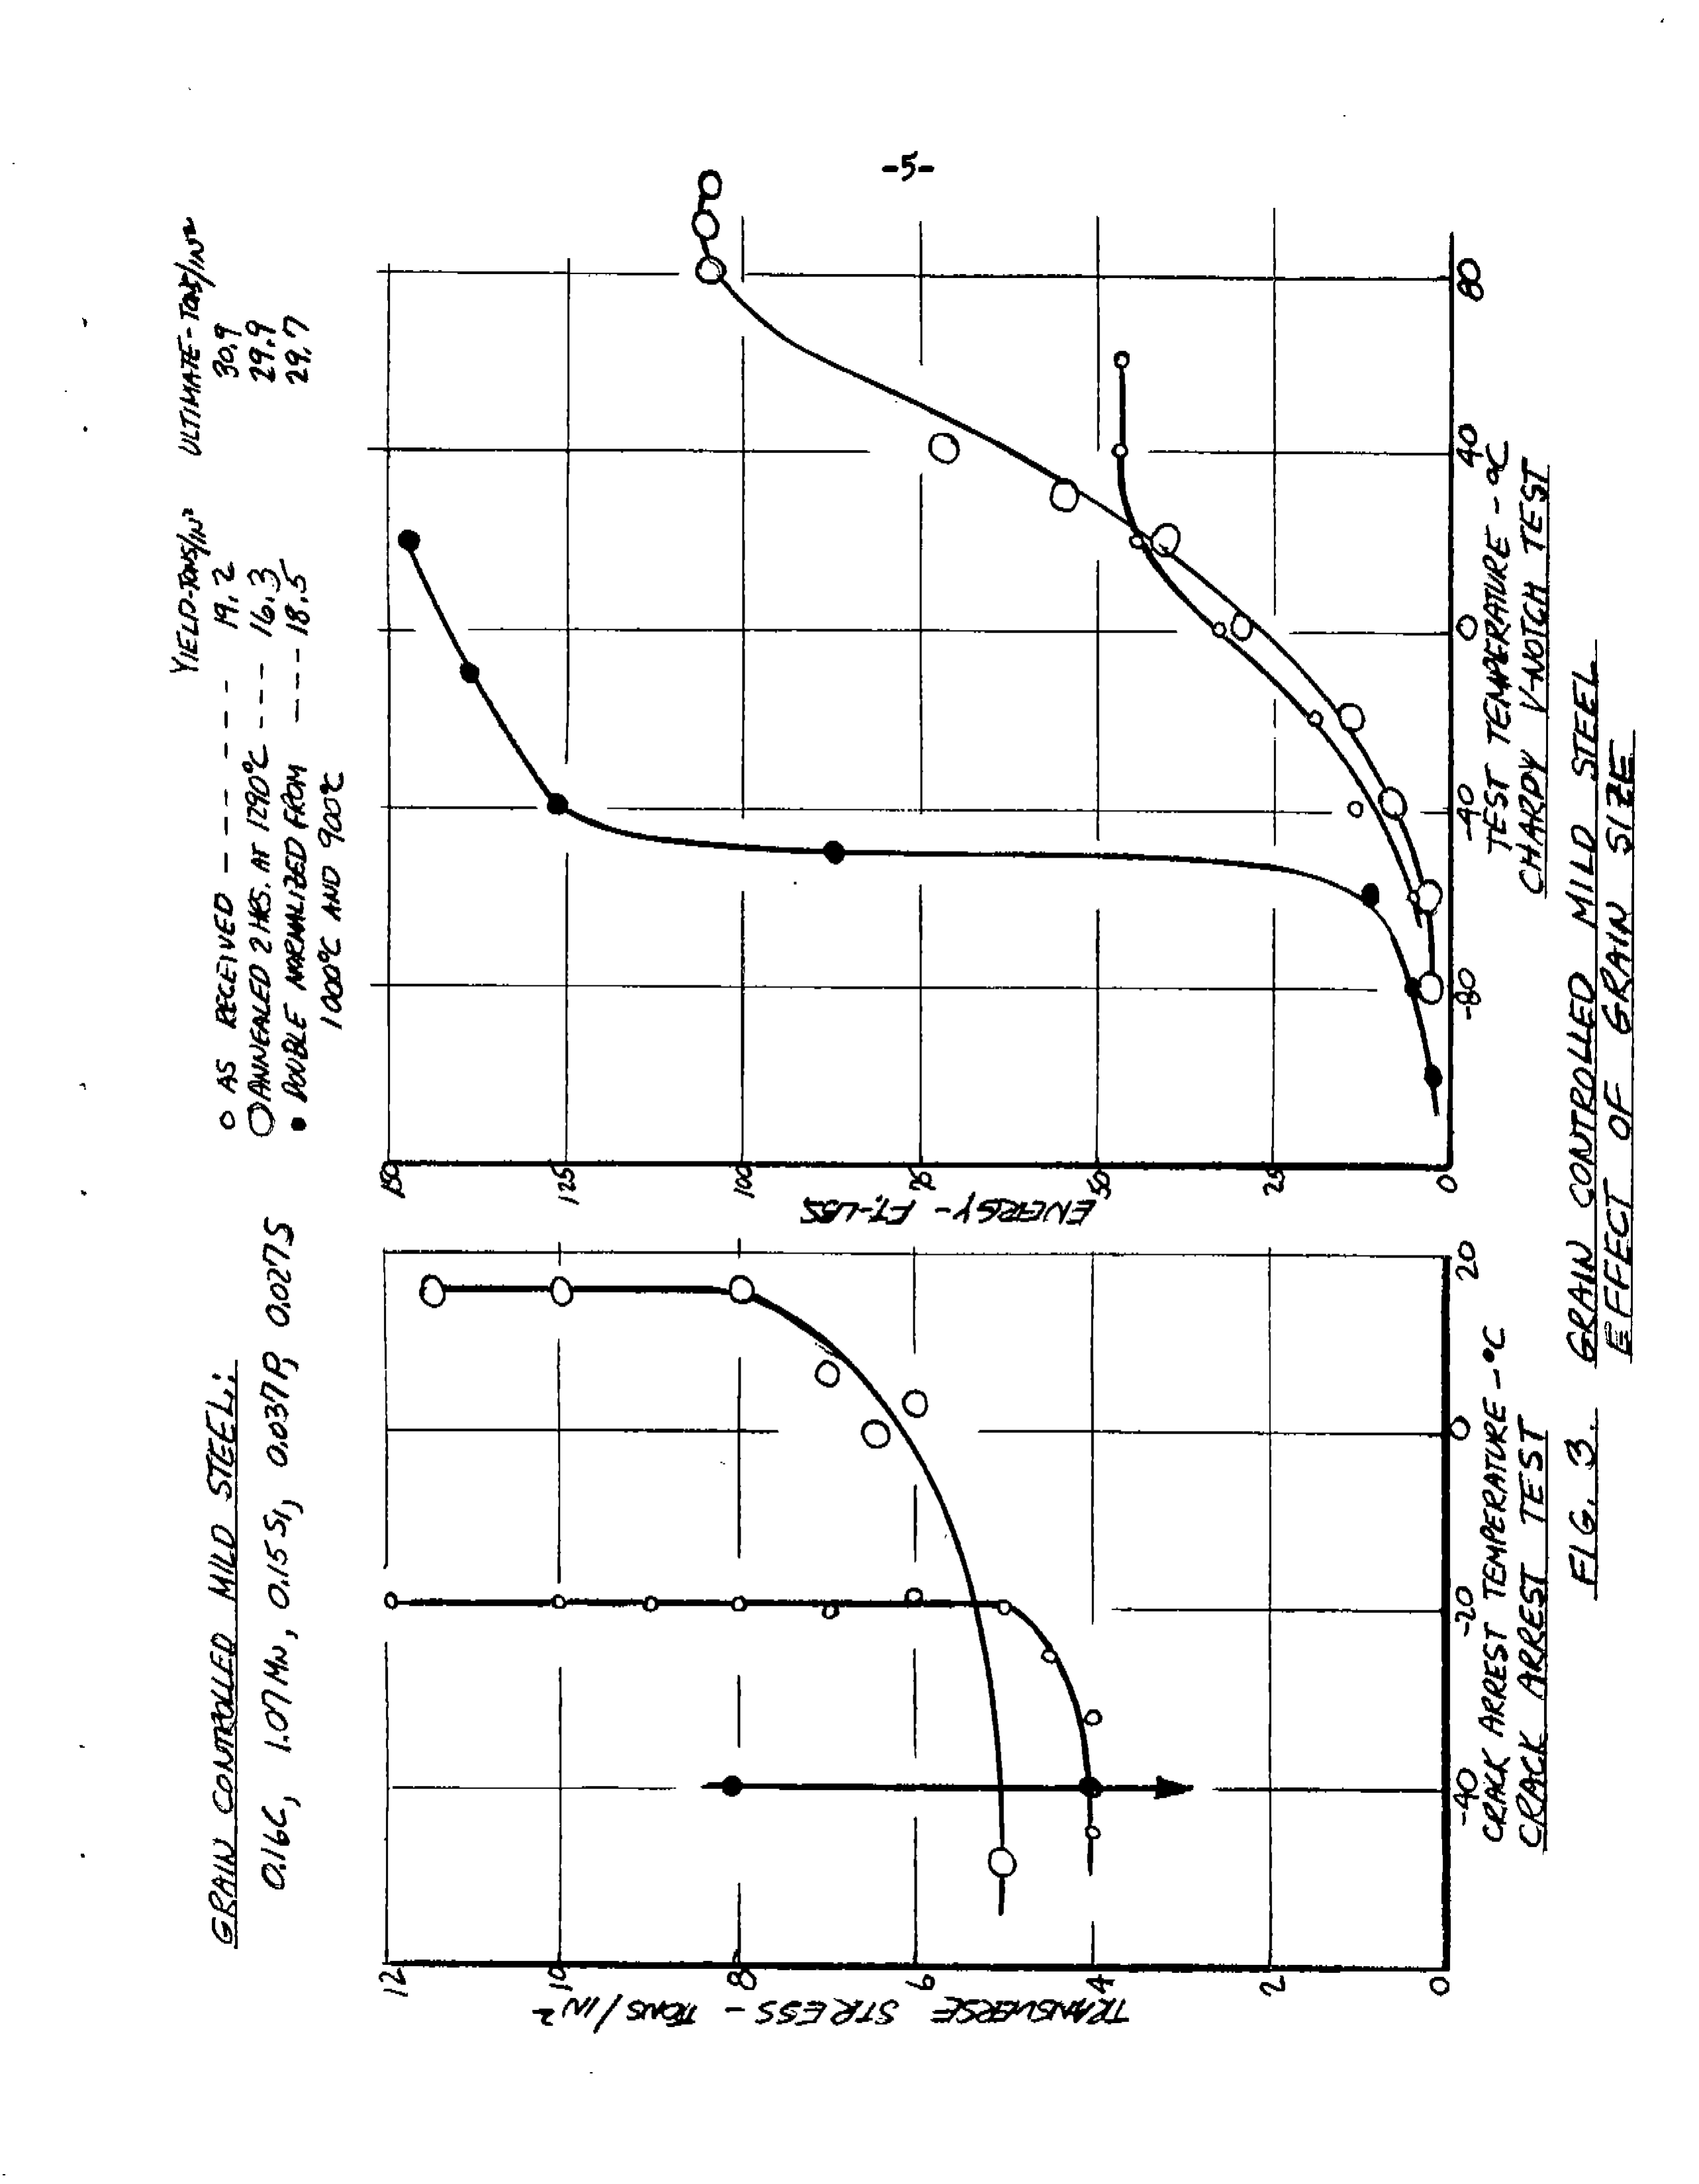 -5-
GRAIN CONTROLLED MILD STEEL:
0.16C, 1.07 MN, 0.15 SI, 0.037P, 0.027S
YIELD-TONS/IN² ULTIMATE-TONS/IN²
○ AS RECEIVED ------ 19.2 30.9
○ ANNEALED 2 HRS. AT 1290°C --- 16.3 29.9
● DOUBLE NORMALIZED FROM --- 18.5 29.7
1000°C AND 900°C
TRANSVERSE STRESS - TONS/IN²
12
10
8
6
4
2
0
-40 -20 0 20
CRACK ARREST TEMPERATURE - °C
CRACK ARREST TEST
ENERGY - FT.-LBS
150
125
100
75
50
25
0
-80 -40 0 40 80
TEST TEMPERATURE - °C
CHARPY V-NOTCH TEST
FIG. 3. GRAIN CONTROLLED MILD STEEL
EFFECT OF GRAIN SIZE